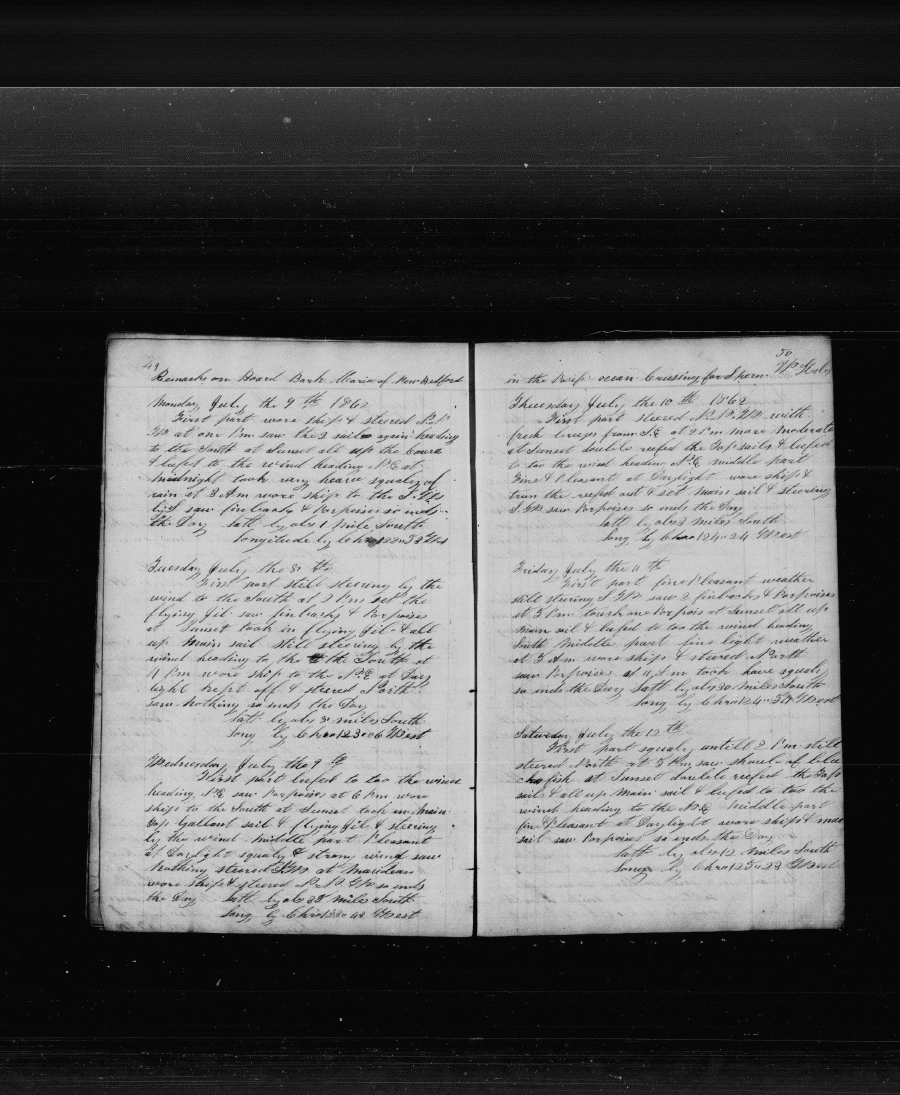 49
Remarks on Board Bark Maria of New Bedford
Monday July the 9 th 1862
First part wore ship & steered
at one Pm saw the 3 sails again heading
to the South at Sunset all up the
& lufed to the wind heading N.E at
midnight took very heave squaly of
rain at 3 Am wore ship to the S.W
saw finbacks & Porpoises so ends
the Day Latt by obs 1 mile South
Longitude by Chro West
Tuesday July the 8 th
First part still steering by the
wind to the South at 2 Pm set the
flying Jib saw finbacks & Porpoises
at Sunset took in flying Jib & all
up main sail still steering by the
wind heading to the the South at
Pm wore ship to the N.E at Day
light kept off & steered North
saw nothing so ends the Day
Latt by obs 30 miles South
Long by Chro 123=06 West
Wednesday July the 9 th
First part lufed to too the wind
heading N.E saw Porpoises at 6 Pm wore
ship to the South at Sunset took in main
Top Gallant sail & flying Jib & steering
by the wind middle part Pleasant
at Daylight squaly & strong wind saw
Nothing steered at
wore Ship & steered so ends
the Day Latt by obs 38 miles South
Long by Chro West
50
in the Pacific ocean Cruising for Sperm
Thuesday July the 10 th 1862
First part steered with
fresh breeze from S.E at 2 Pm more moderate
at Sunset double reefed the Top sails & lufed
to too the wind heading N.E middle part
fine & Pleasant at Daylight wore ship &
turn the reefs out & set main sail & steering
S.W saw Porpoises so ends the Day
Latt by obs 3 miles South
Long by Chro 124=24 West
Friday July the 11 th
First part fine Pleasant weather
still steering S.W saw 2 finbacks & Porpoises
at 3 Pm Porpois at Sunset all up
main sail & lufed to too the wind heading
South middle part fine light weather
at 3 Am wore ship & steered North
saw Porpoises at 4 Am took have squaly
so ends the Day Latt by obs 30 miles South
Long by Chro 124= West
Saturday July the 12 th
First part squaly untill 2 Pm still
steered North at 3 Pm saw shoole of black
fish at Sunset double reefed the Top
sails & all up main sail & lufed to too the
wind heading to the N.E middle part
fine & Pleasant at Daylight wore ship &
sail saw Porpoises so ends the Day
Latt by obs 12 miles South
Long by Chro 125=23 West